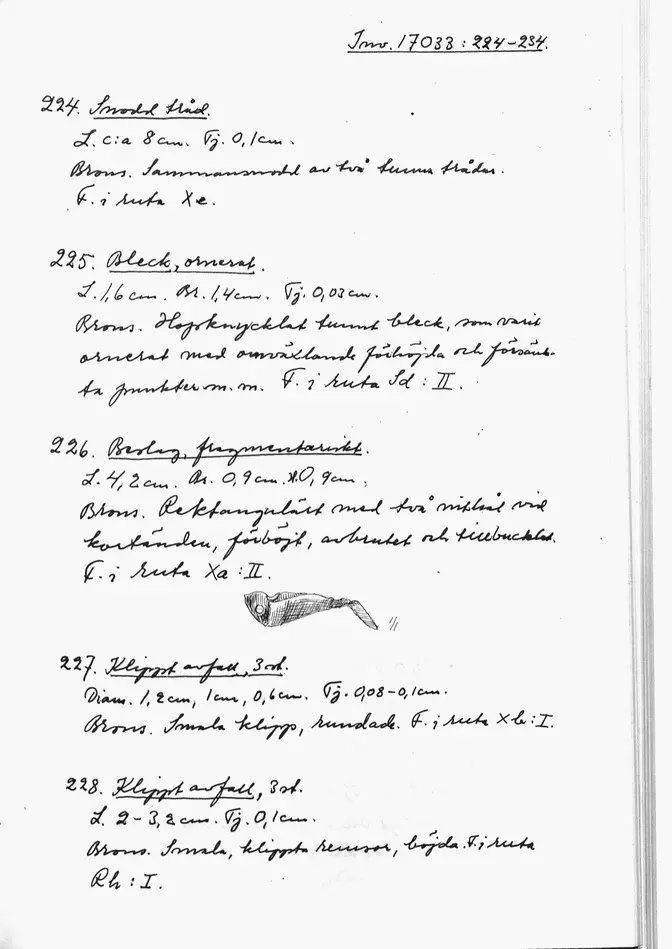 Inv. 17033 : 224-234.
224. Snodd tråd.
L. c:a 8 cm. Tj. 0,1 cm.
Brons. Sammansnodd av två tunna trådar.
F. i ruta Xe.
225. Bleck, ornerat.
L. 1,6 cm. Br. 1,4 cm. Tj. 0,03 cm.
Brons. Hopknycklat tunnt bleck, som varit
ornerat med omväxlande förhöjda och försänk-
ta punkter m. m. F. i ruta Sd : II.
226. Beslag, fragmentariskt.
L. 4,2 cm. Br. 0,9 cm. H. 0,9 cm.
Brons. Rektangulärt med två nithål vid
kortänden, förböjt, avbrutet och tillbucklat.
F. i ruta Xa : II.
1/1
227. Klippt avfall, 3 st.
Diam. 1,2 cm, 1 cm, 0,6 cm. Tj. 0,08-0,1 cm.
Brons. Smala klipp, rundade. F. i ruta Xb : I.
228. Klippt avfall, 3 st.
L. 2-3,2 cm. Tj. 0,1 cm.
Brons. Smala, klippta remsor, böjda. F. i ruta
Rh : I.